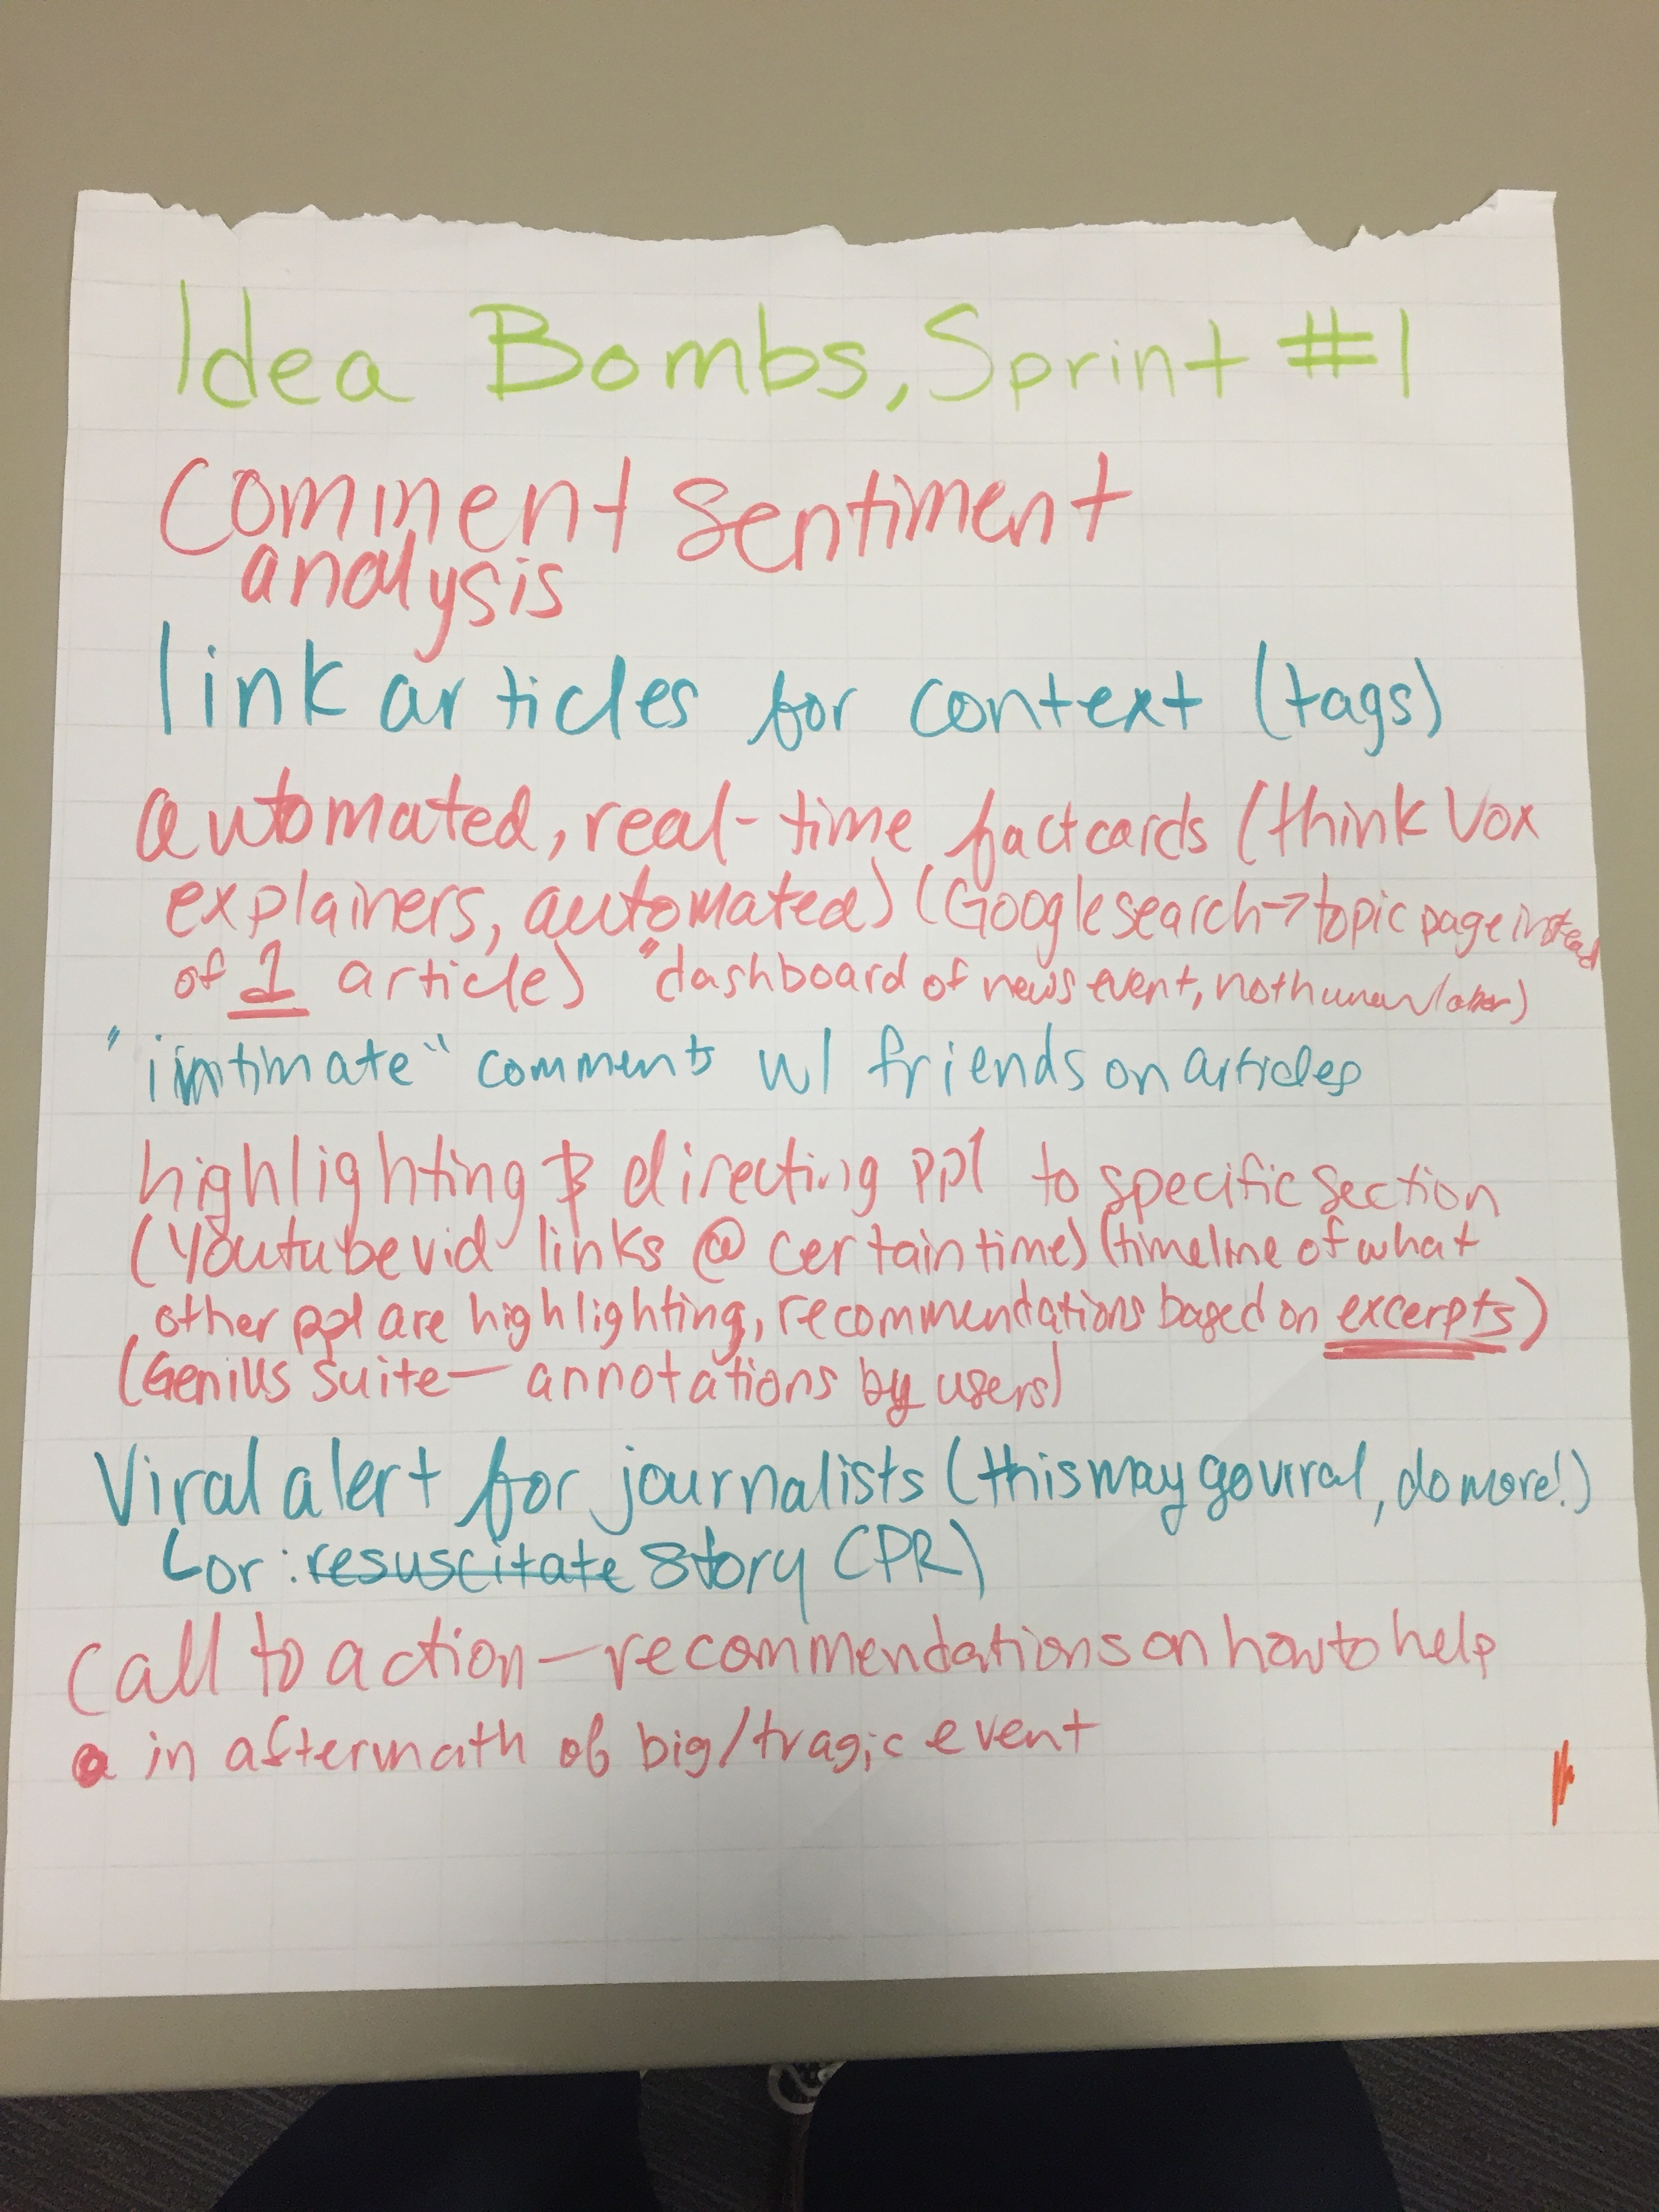 Idea Bombs, Sprint #1
Comment Sentiment
analysis
link articles for context (tags)
automated, real-time factcards (think Vox
explainers, automated) (Google search→topic page instead
of 1 article) "dashboard of news event, not human labor)
"intimate" comments w/ friends on articles
highlighting & directing ppl to specific section
(Youtube vid links @ certain time) (timeline of what
other ppl are highlighting, recommendations based on excerpts)
(Genius suite — annotations by users)
Viral alert for journalists (this may go viral, do more!)
or: resuscitate story CPR)
Call to action — recommendations on how to help
in aftermath of big/tragic event